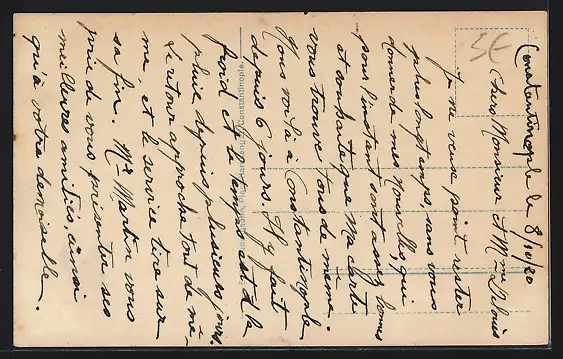 Constantinople le 8/10/20
Chers Monsieur et Mme
Je ne veux point rester
plus longtemps, sans vous
donner de mes nouvelles, qui
pour l'instant sont assez bonnes
et souhaite que ma carte
vous trouve tous de même.
Nous voilà à Constantinople
depuis 6 jours. Il y fait
froid et le temps est à la
pluie depuis plusieurs jours.
Le retour approche tout de mê-
me, et le service tire sur
sa fin. Mr Martin vous
prie de vous présenter ses
meilleures amitiés, ainsi
qu'à votre demoiselle.
5€
Constantinople